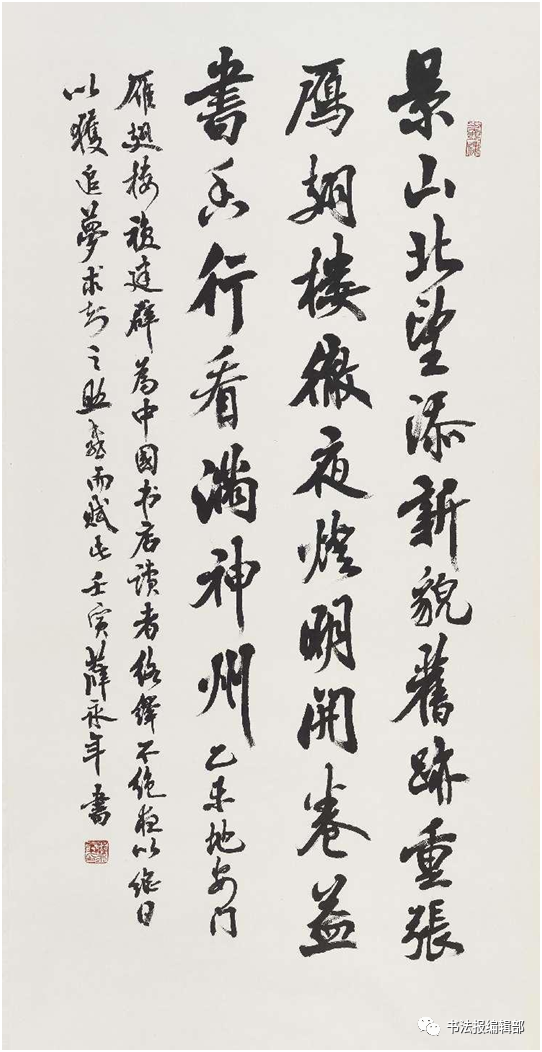 景山北望添新貌舊跡重張
鴈翅楼徹夜燈明開卷益
書香行看滿神州乙未地安门
雁翅楼複建辟為中国书店读者络绎不绝夜以继日
以獲追夢求知之助喜而賦此壬寅薛永年書
书法报编辑部